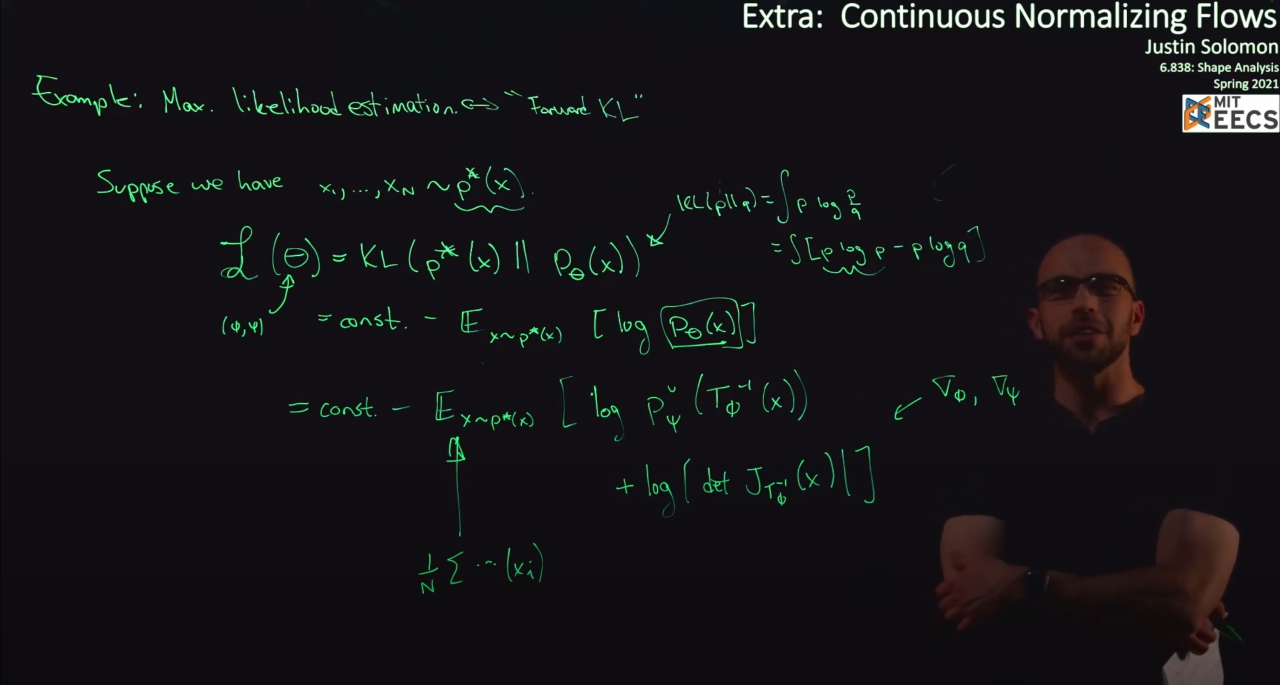 Extra: Continuous Normalizing Flows
Justin Solomon
6.838: Shape Analysis
Spring 2021
MIT
EECS
Example: Max. likelihood estimation. ⟺ "Forward KL"
Suppose we have x₁, ..., x_N ~ p*(x).
KL(p||q) = ∫ p log p/q
= ∫[p log p − p log q]
ℒ(Θ) = KL(p*(x) || p_Θ(x))
(φ,ψ)
= const. − 𝔼_{x~p*(x)} [log p_Θ(x)]
= const. − 𝔼_{x~p*(x)} [log p^u_ψ(T_φ^{-1}(x))
∇φ, ∇ψ
+ log|det J_{T_φ^{-1}}(x)|]
1/N Σ ...(xᵢ)